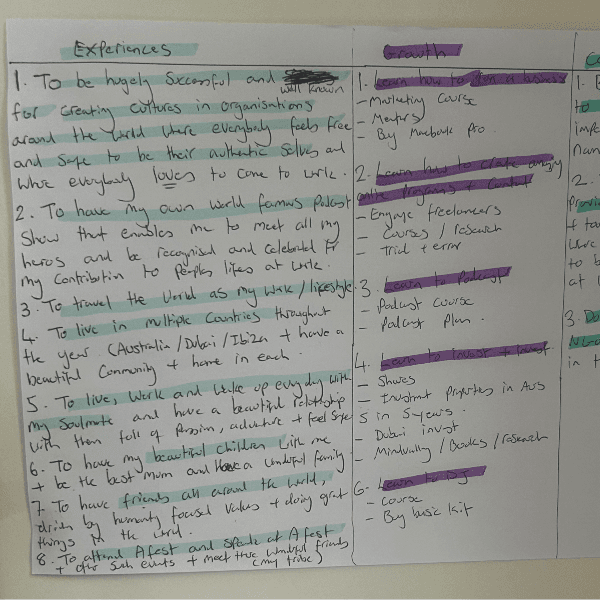 Experiences
1. To be hugely successful and well known
for creating cultures in organisations
around the world where everybody feels free
and safe to be their authentic selves and
where everybody loves to come to work.
2. To have my own world famous Podcast
Show that enables me to meet all my
heros and be recognised and celebrated for
my contribution to peoples lifes at work.
3. To travel the world as my work / lifestyle
4. To live in multiple countries throughout
the year. (Australia / Dubai / Ibiza + have a
beautiful community + home in each.
5. To live, work and wake up everyday with
my soulmate and have a beautiful relationship
with them full of passion, adventure + feel safe
6. To have my beautiful children with me
+ be the best mum and have a wonderful family
7. To have friends all around the world,
driven by humanity focused values + doing great
things in the world.
8. To attend A fest and speak at A fest
+ other such events + meet these wonderful friends
(my tribe)
Growth
1. Learn how to run a business
- Marketing Course
- Mentors
- Buy Macbook Pro.
2. Learn how to create
online Programs + Content
- Engage freelancers
- Courses / research
- Trial + error
3. Learn to Podcast
- Podcast course
- Podcast Plan.
4. Learn to invest +
- Shares
- Investment Properties in Aus
5 in 5 years.
- Dubai invest
- Mindvalley / Books / research
6. Learn to DJ
- Course
- Buy basic kit
1.
to
2.
+
to b
at
3. Do
in